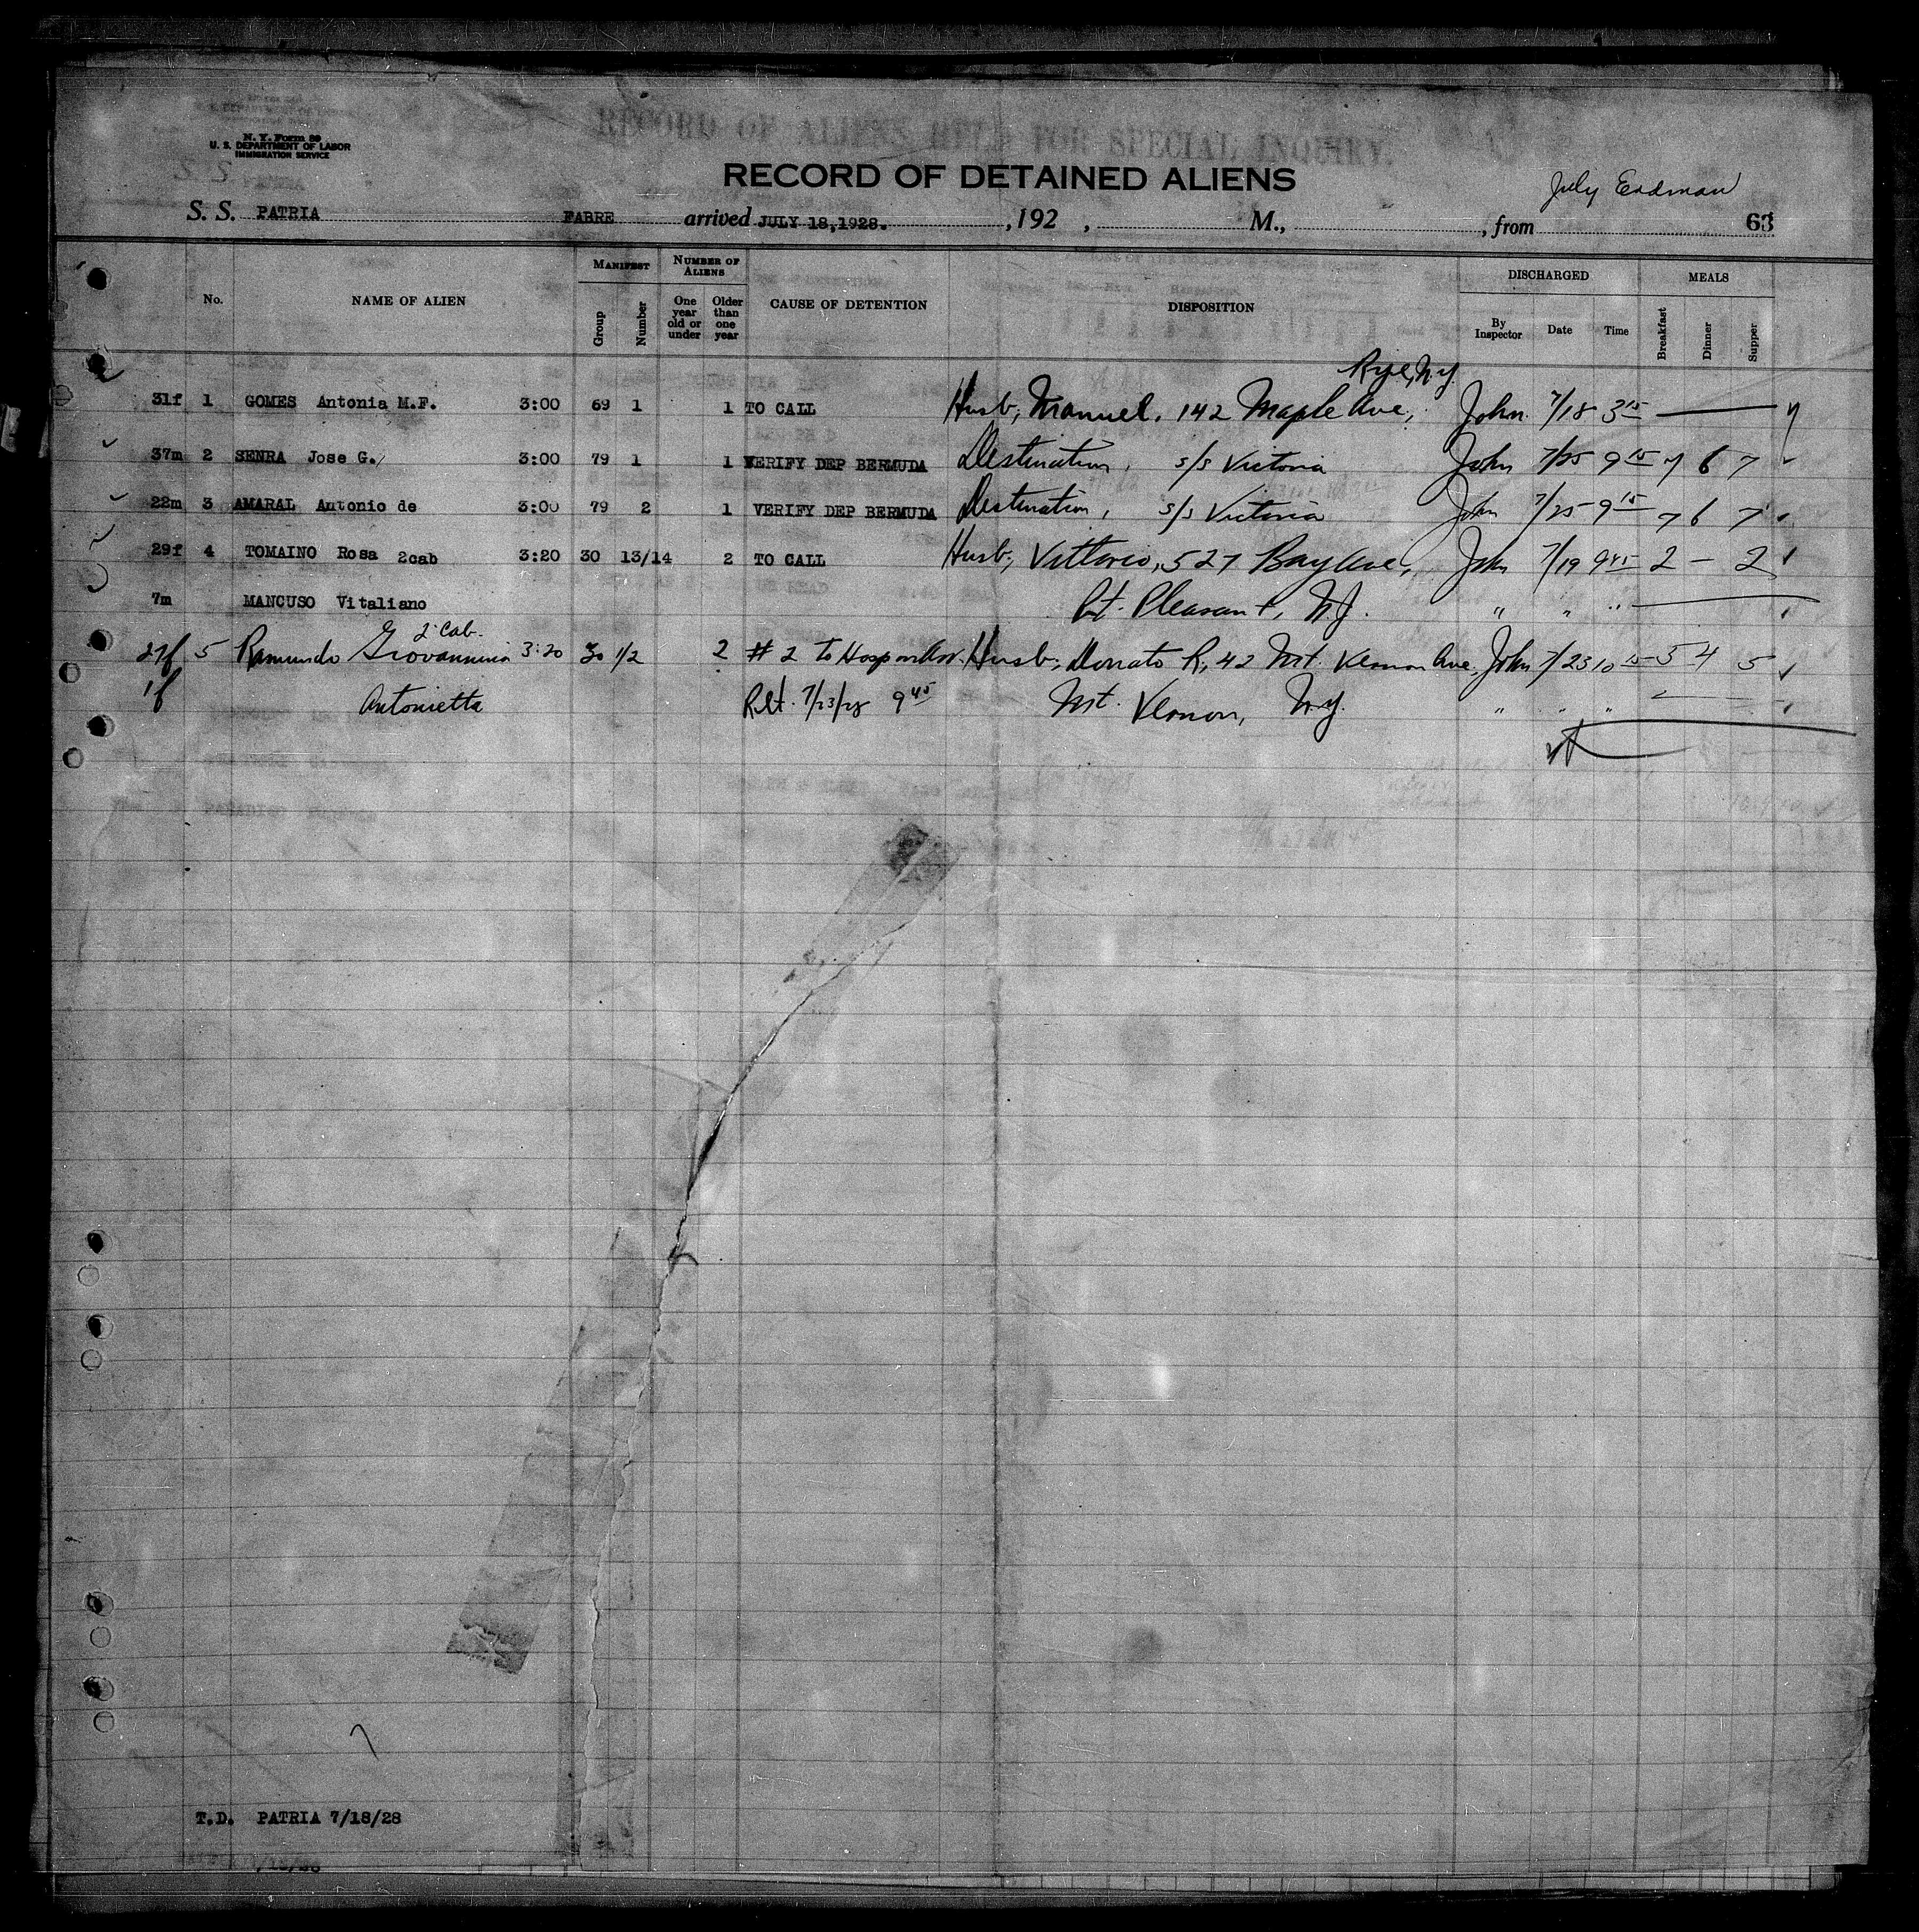 RECORD OF ALIENS HELD FOR SPECIAL INQUIRY.
N. Y. Form 99
U. S. DEPARTMENT OF LABOR
IMMIGRATION SERVICE
RECORD OF DETAINED ALIENS
July
S. S. PATRIA FABRE arrived JULY 18,1928. ,192 , M., , from 63
No. NAME OF ALIEN MANIFEST Group Number NUMBER OF ALIENS One year old or under Older than one year CAUSE OF DETENTION DISPOSITION DISCHARGED By Inspector Date Time MEALS Breakfast Dinner Supper
Rye, N.Y.
31f 1 GOMES Antonia M.F. 3:00 69 1 1 TO CALL Husb, Manuel, 142 Maple Ave, John 7/18 3 15
37m 2 SENRA Jose G. 3:00 79 1 1 VERIFY DEP BERMUDA Destination, s/s Victoria John 7/25 9 15 7 6 7
22m 3 AMARAL Antonio de 3:00 79 2 1 VERIFY DEP BERMUDA Destination, s/s Victoria John 7/25 9 15 7 6 7
29f 4 TOMAINO Rosa 2cab 3:20 30 13/14 2 TO CALL Husb, Vittorio, 527 Bay Ave, John 7/19 9 45 2 — 2
7m MANCUSO Vitaliano Pt. Pleasant, N.J. " " "
2 cab.
27f 5 Ramundo Giovannina 3:20 30 1/2 2 # 2 To Hosp on Arr. Husb, Donato R, 42 Mt. Vernon Ave, John 7/23 10 15 5 4 5
1f Antonietta Rlt. 7/23/28 9 45 Mt. Vernon, N.Y. " " "
T.D. PATRIA 7/18/28